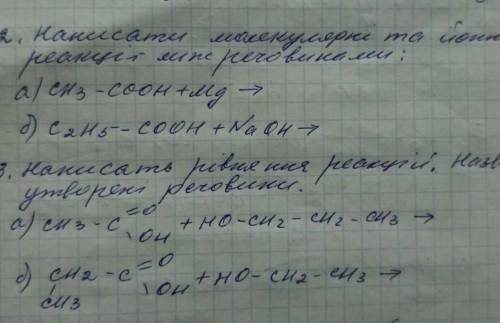 2. Написати молекулярні та йонн
реакції між речовинами:
а) CH3-COOH+Mg→
б) C2H5--COOH+NaOH→
3. Написать рівняння реакцій. Назв
утворені речовини.
а) CH3-C=O OH +HO-CH2-CH2-CH3→
б) CH2-C=O OH +HO-CH2-CH3→
CH3